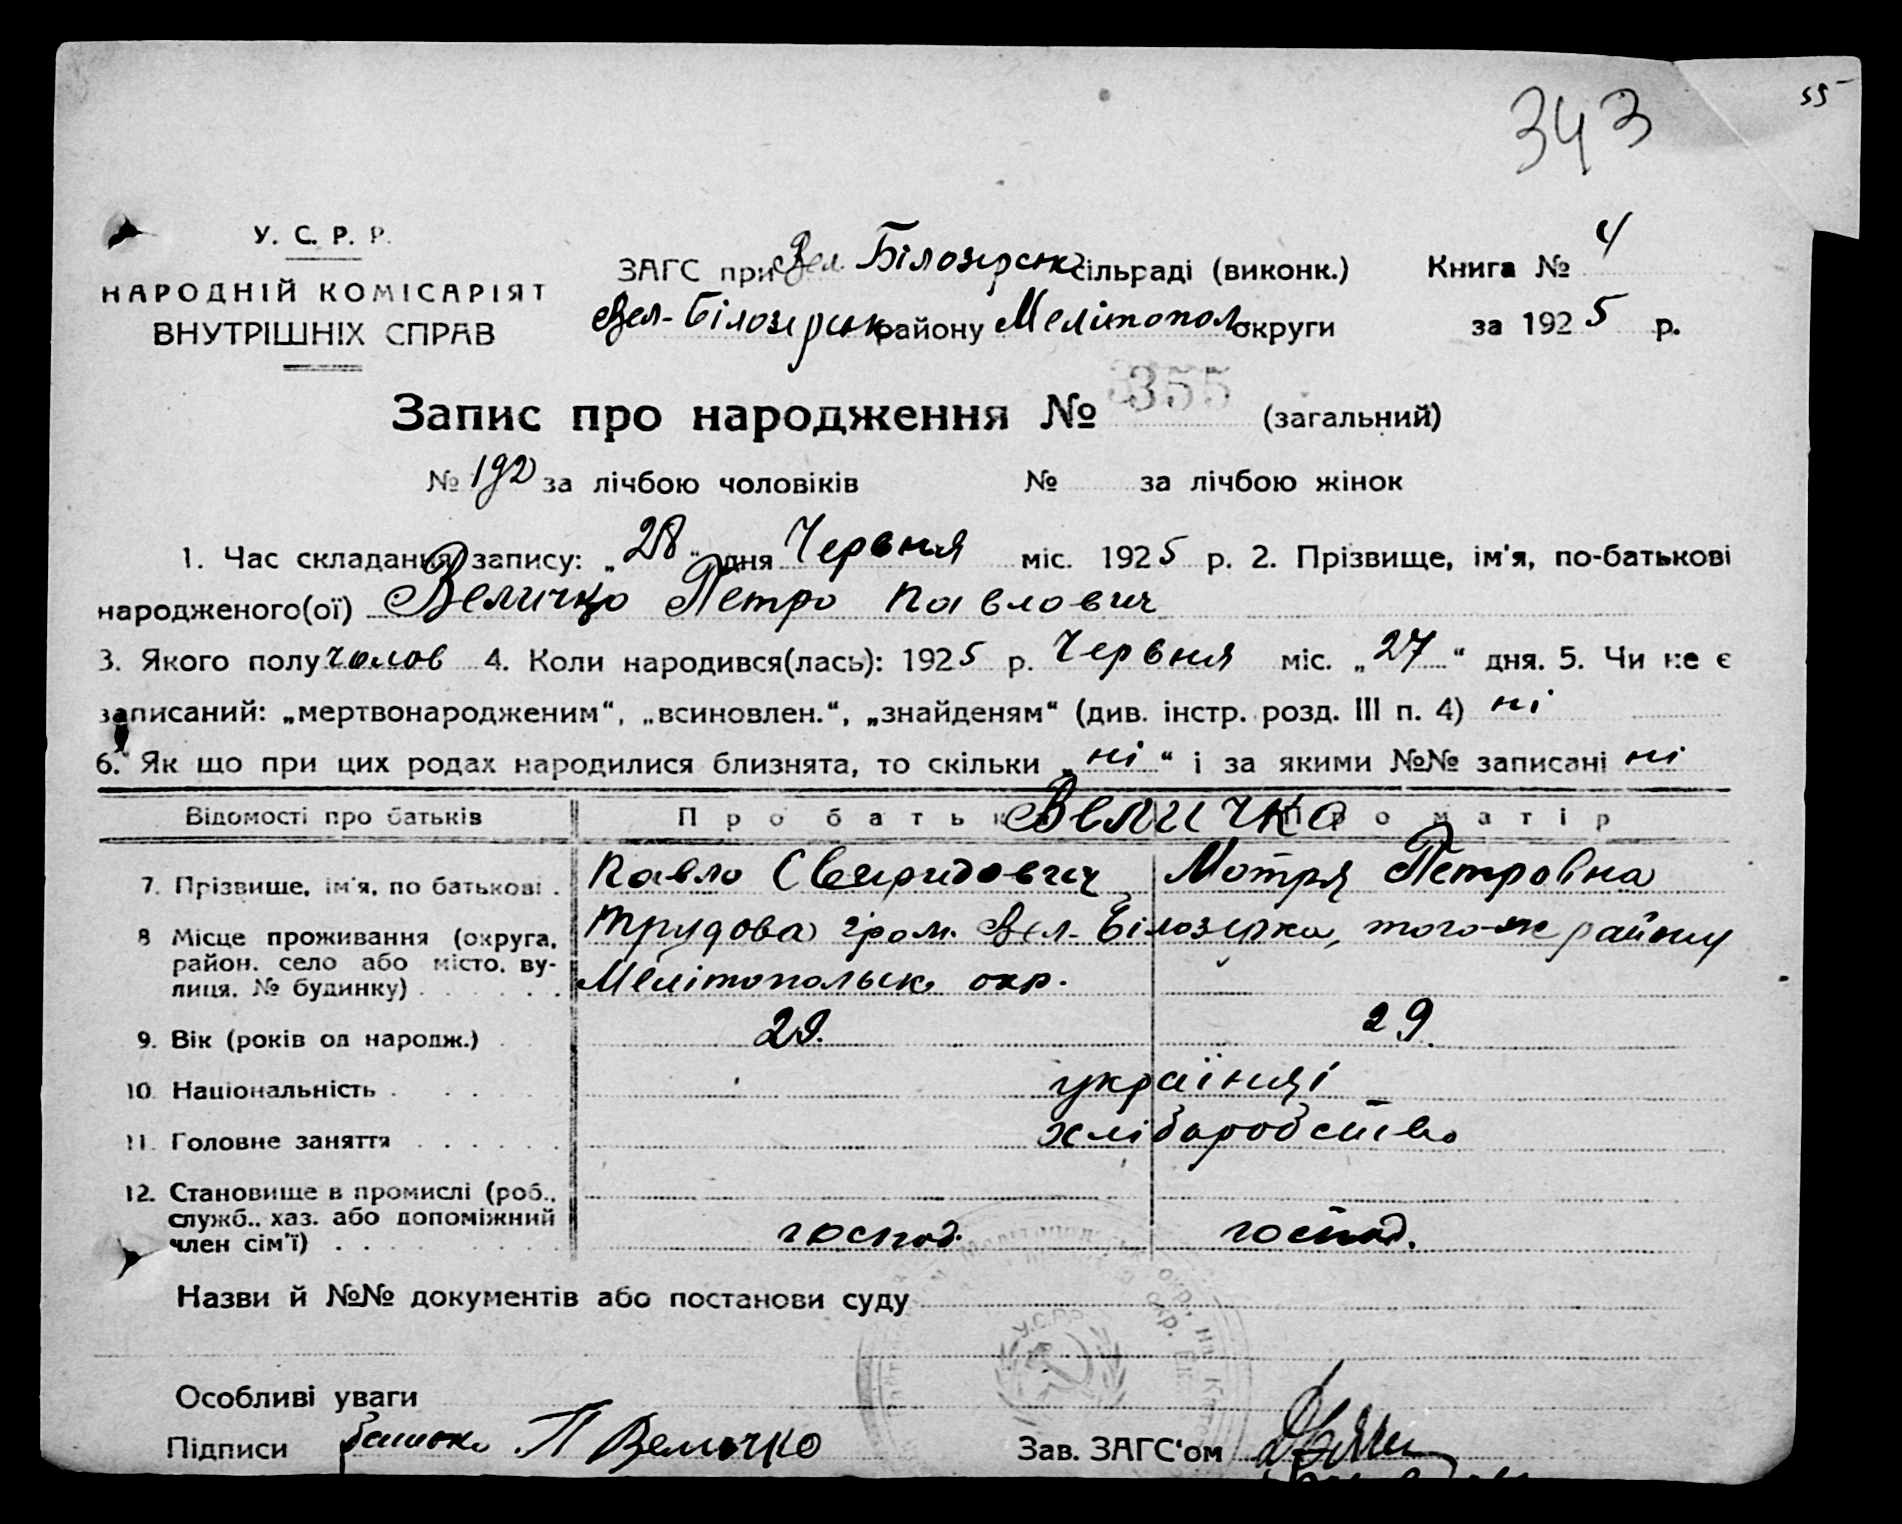 55
343
У. С. Р. Р.
НАРОДНІЙ КОМІСАРІЯТ
ВНУТРІШНІХ СПРАВ
ЗАГС при Вел Білозерськ сільраді (виконк.)
Вел-Білозерськ району Мелітопол округи
Книга № 4
за 1925 р.
Запис про народження № 355 (загальний)
№ 192 за лічбою чоловіків № за лічбою жінок
1. Час складання запису: „28" дня Червня міс. 1925 р. 2. Прізвище, ім'я, по-батькові
народженого(ої) Величко Петро Павлович
3. Якого полу чолов 4. Коли народився(лась): 1925 р. Червня міс. „27" дня. 5. Чи не є
записаний: „мертвонародженим", „всиновлен.", „знайденям" (див. інстр. розд. III п. 4) ні
6. Як що при цих родах народилися близнята, то скільки „ні" і за якими №№ записані ні
Відомості про батьків Про батька Про матір
Величко
7. Прізвище, ім'я, по батькові . Павло Свиридович Мотря Петровна
8 Місце проживання (округа, район. село або місто, вулиця. № будинку) . . . . . Трудова гром. Вел-Білозерка, того-ж району
Мелітопольськ окр.
9. Вік (років од народж.) . 29. 29.
10. Національність . . . . . українці
11. Головне заняття . . . . . . хліборобство
12. Становище в промислі (роб., служб., хаз. або допоміжний член сім'ї) . . . . господ. господ.
Назви й №№ документів або постанови суду
Особливі уваги
У.С.Р.Р.
Підписи батько П Величко Зав. ЗАГС'ом